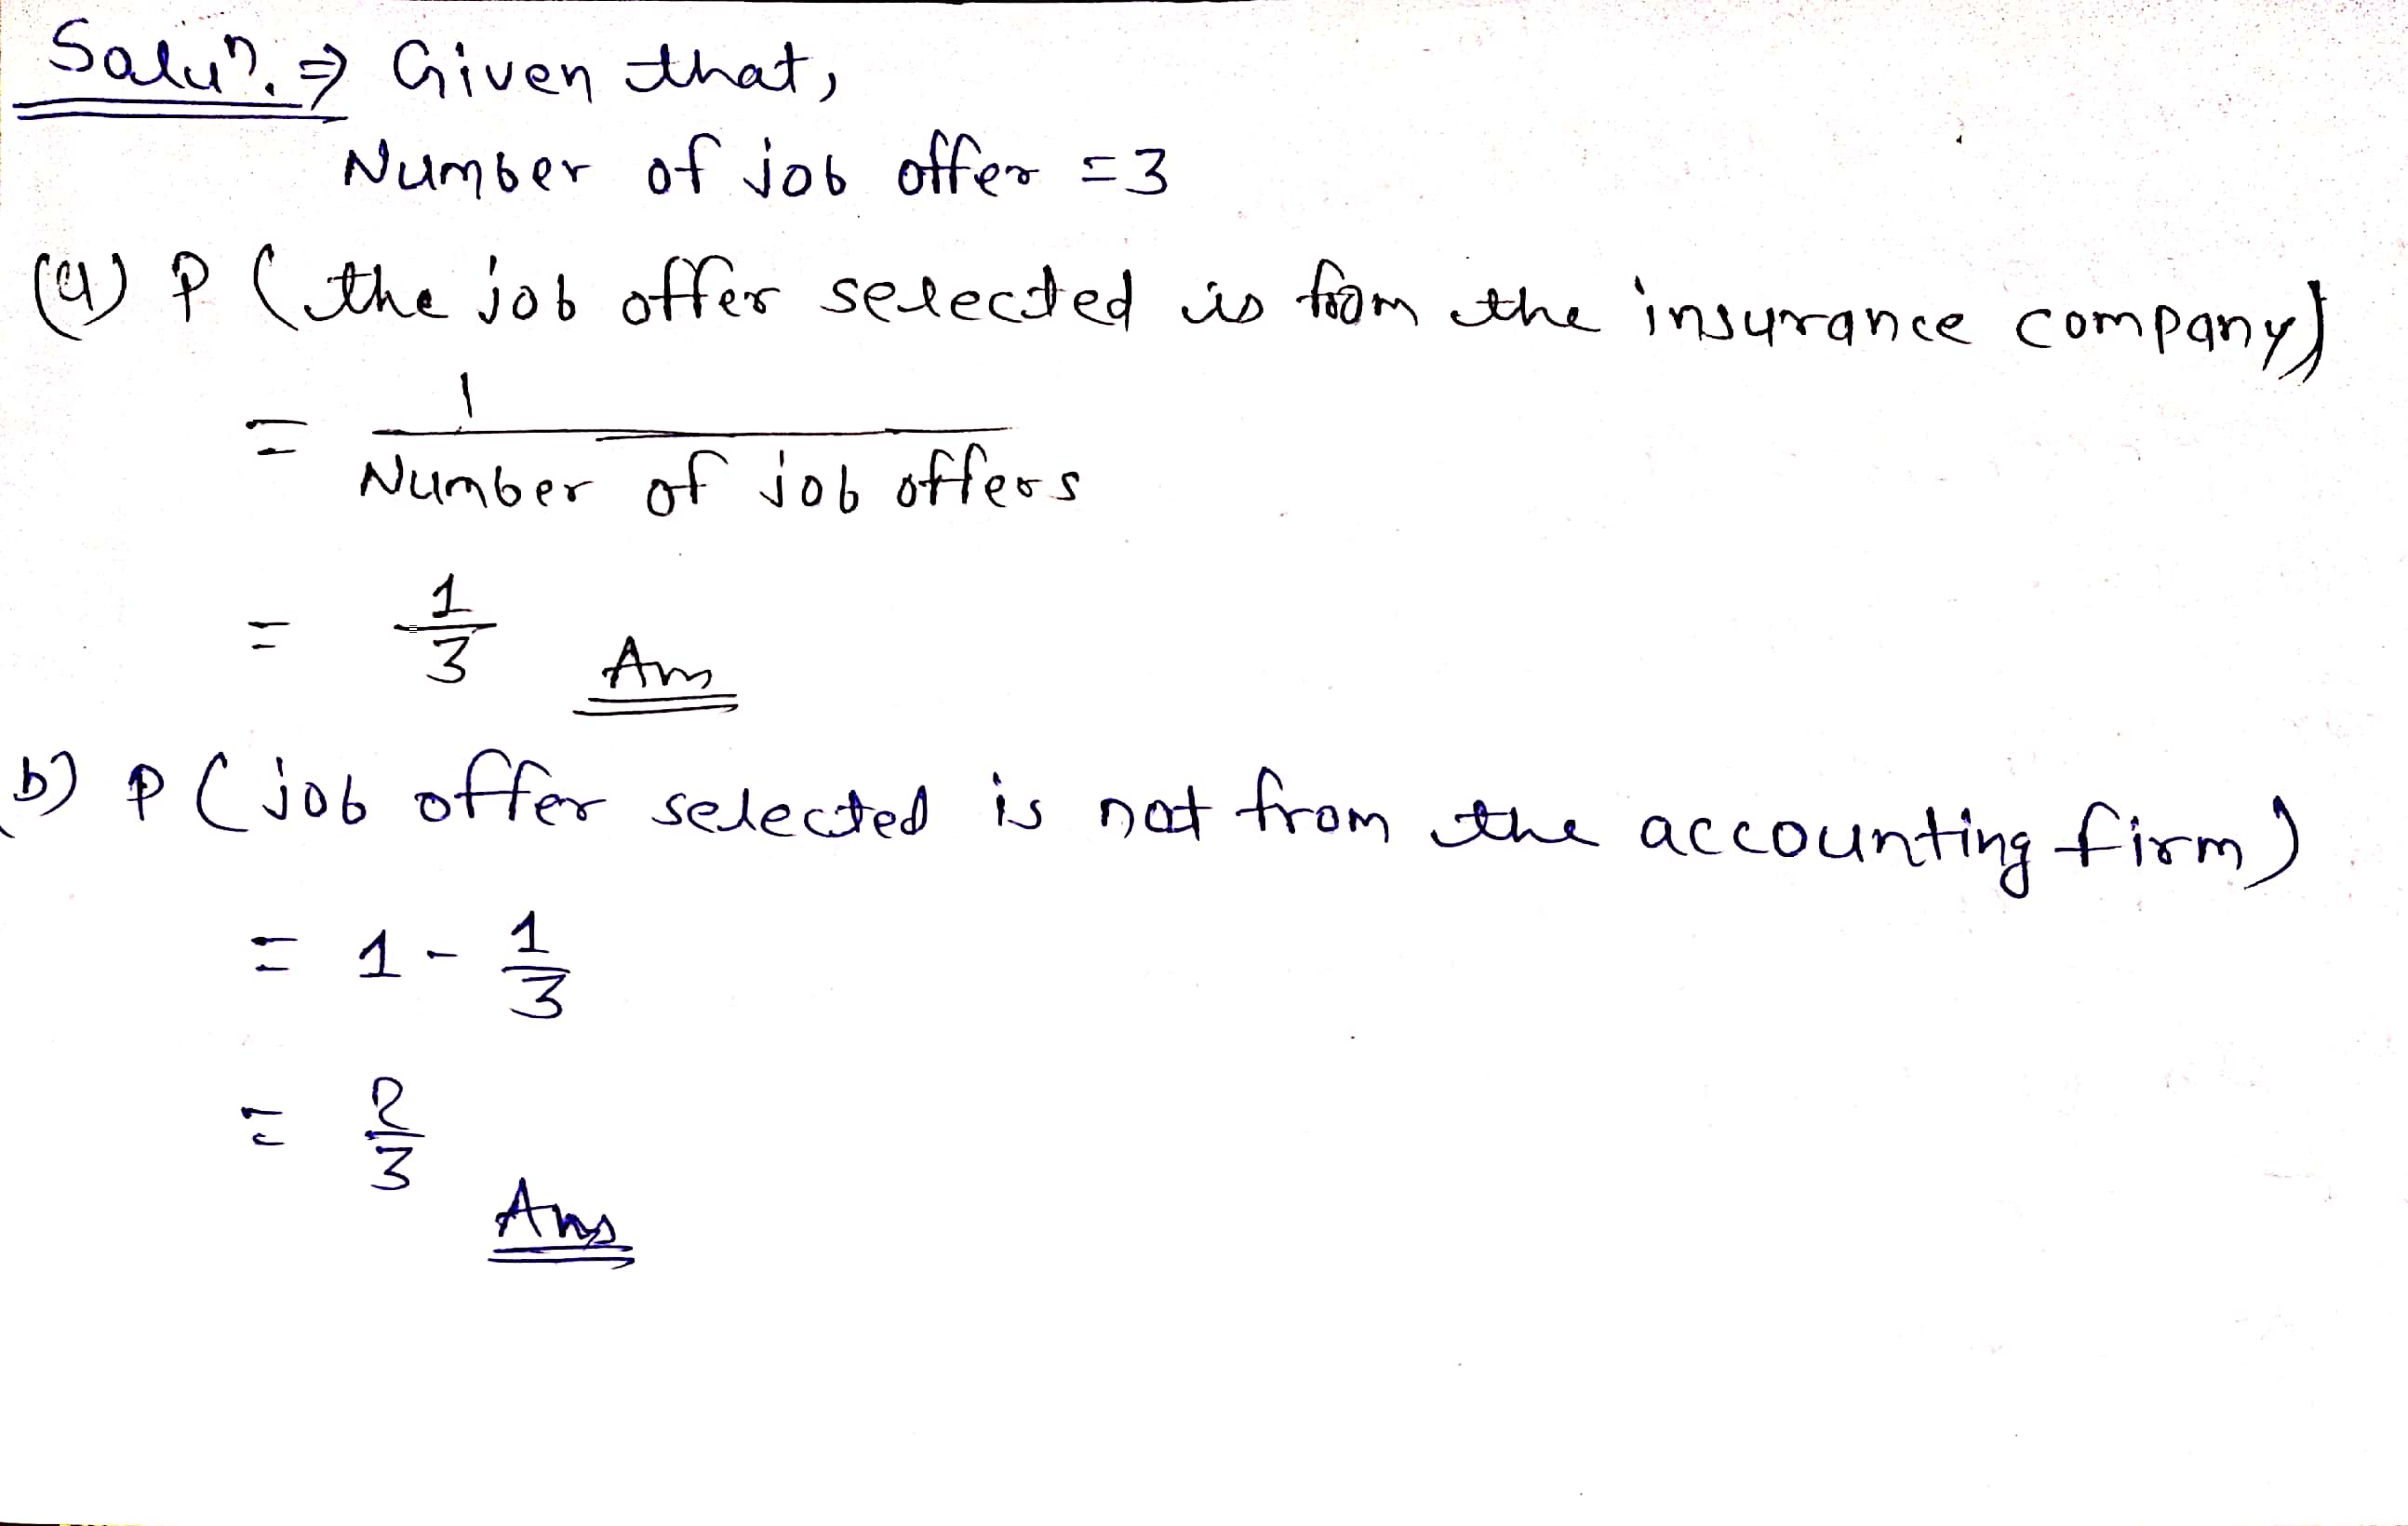 Soluⁿ. ⇒ Given that,
Number of job offer = 3
(a) P (the job offer selected is from the insurance company)
= 1 / Number of job offers
= 1/3 Ans
b) P (job offer selected is not from the accounting firm)
= 1 - 1/3
= 2/3
Ans